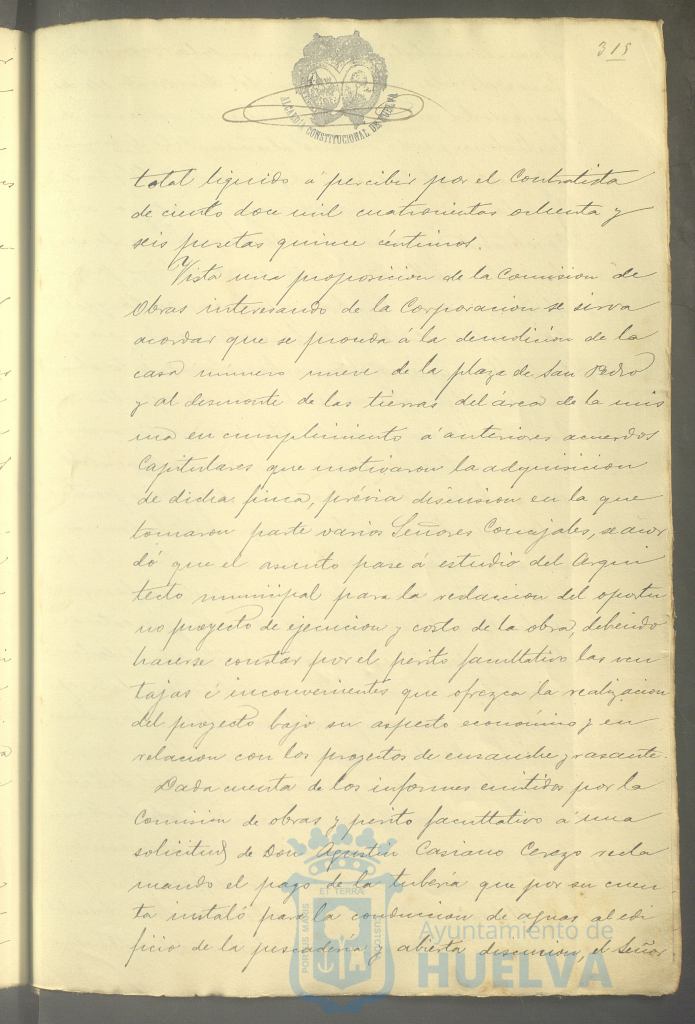 315
ALCALDÍA CONSTITUCIONAL DE HUELVA
total liquido á percibir por el Contratista
de ciento doce mil cuatrocientas ochenta y
seis pesetas quince céntimos.
Vista una proposicion de la Comision de
Obras interesando de la Corporacion se sirva
acordar que se proceda á la demolicion de la
casa numero nueve de la plaza de San Pedro
y al desmonte de las tierras del área de la mis
ma en cumplimiento á anteriores acuerdos
Capitulares que motivaron la adquisicion
de dicha finca, prévia discusion en la que
tomaron parte varios Señores Concejales, se acor
dó que el asunto pase á estudio del Arqui
tecto municipal para la redaccion del oportu
no proyecto de ejecucion y costo de la obra, debiendo
hacerse constar por el perito facultativo las ven
tajas é inconvenientes que ofrezca la realizacion
del proyecto bajo su aspecto económico y en
relacion con los proyectos de ensanche y rasante.
Dada cuenta de los informes emitidos por la
Comision de obras y perito facultativo á una
solicitud de Don Agustin Casiano Cerezo recla
mando el pago de la tubería que por su cuen
ta instaló para la conduccion de aguas al edi
ficio de la pescaderia y abierta discusion, el Señor
PORTUS MARIS ET TERRÆ CUSTODIA
Ayuntamiento de
HUELVA